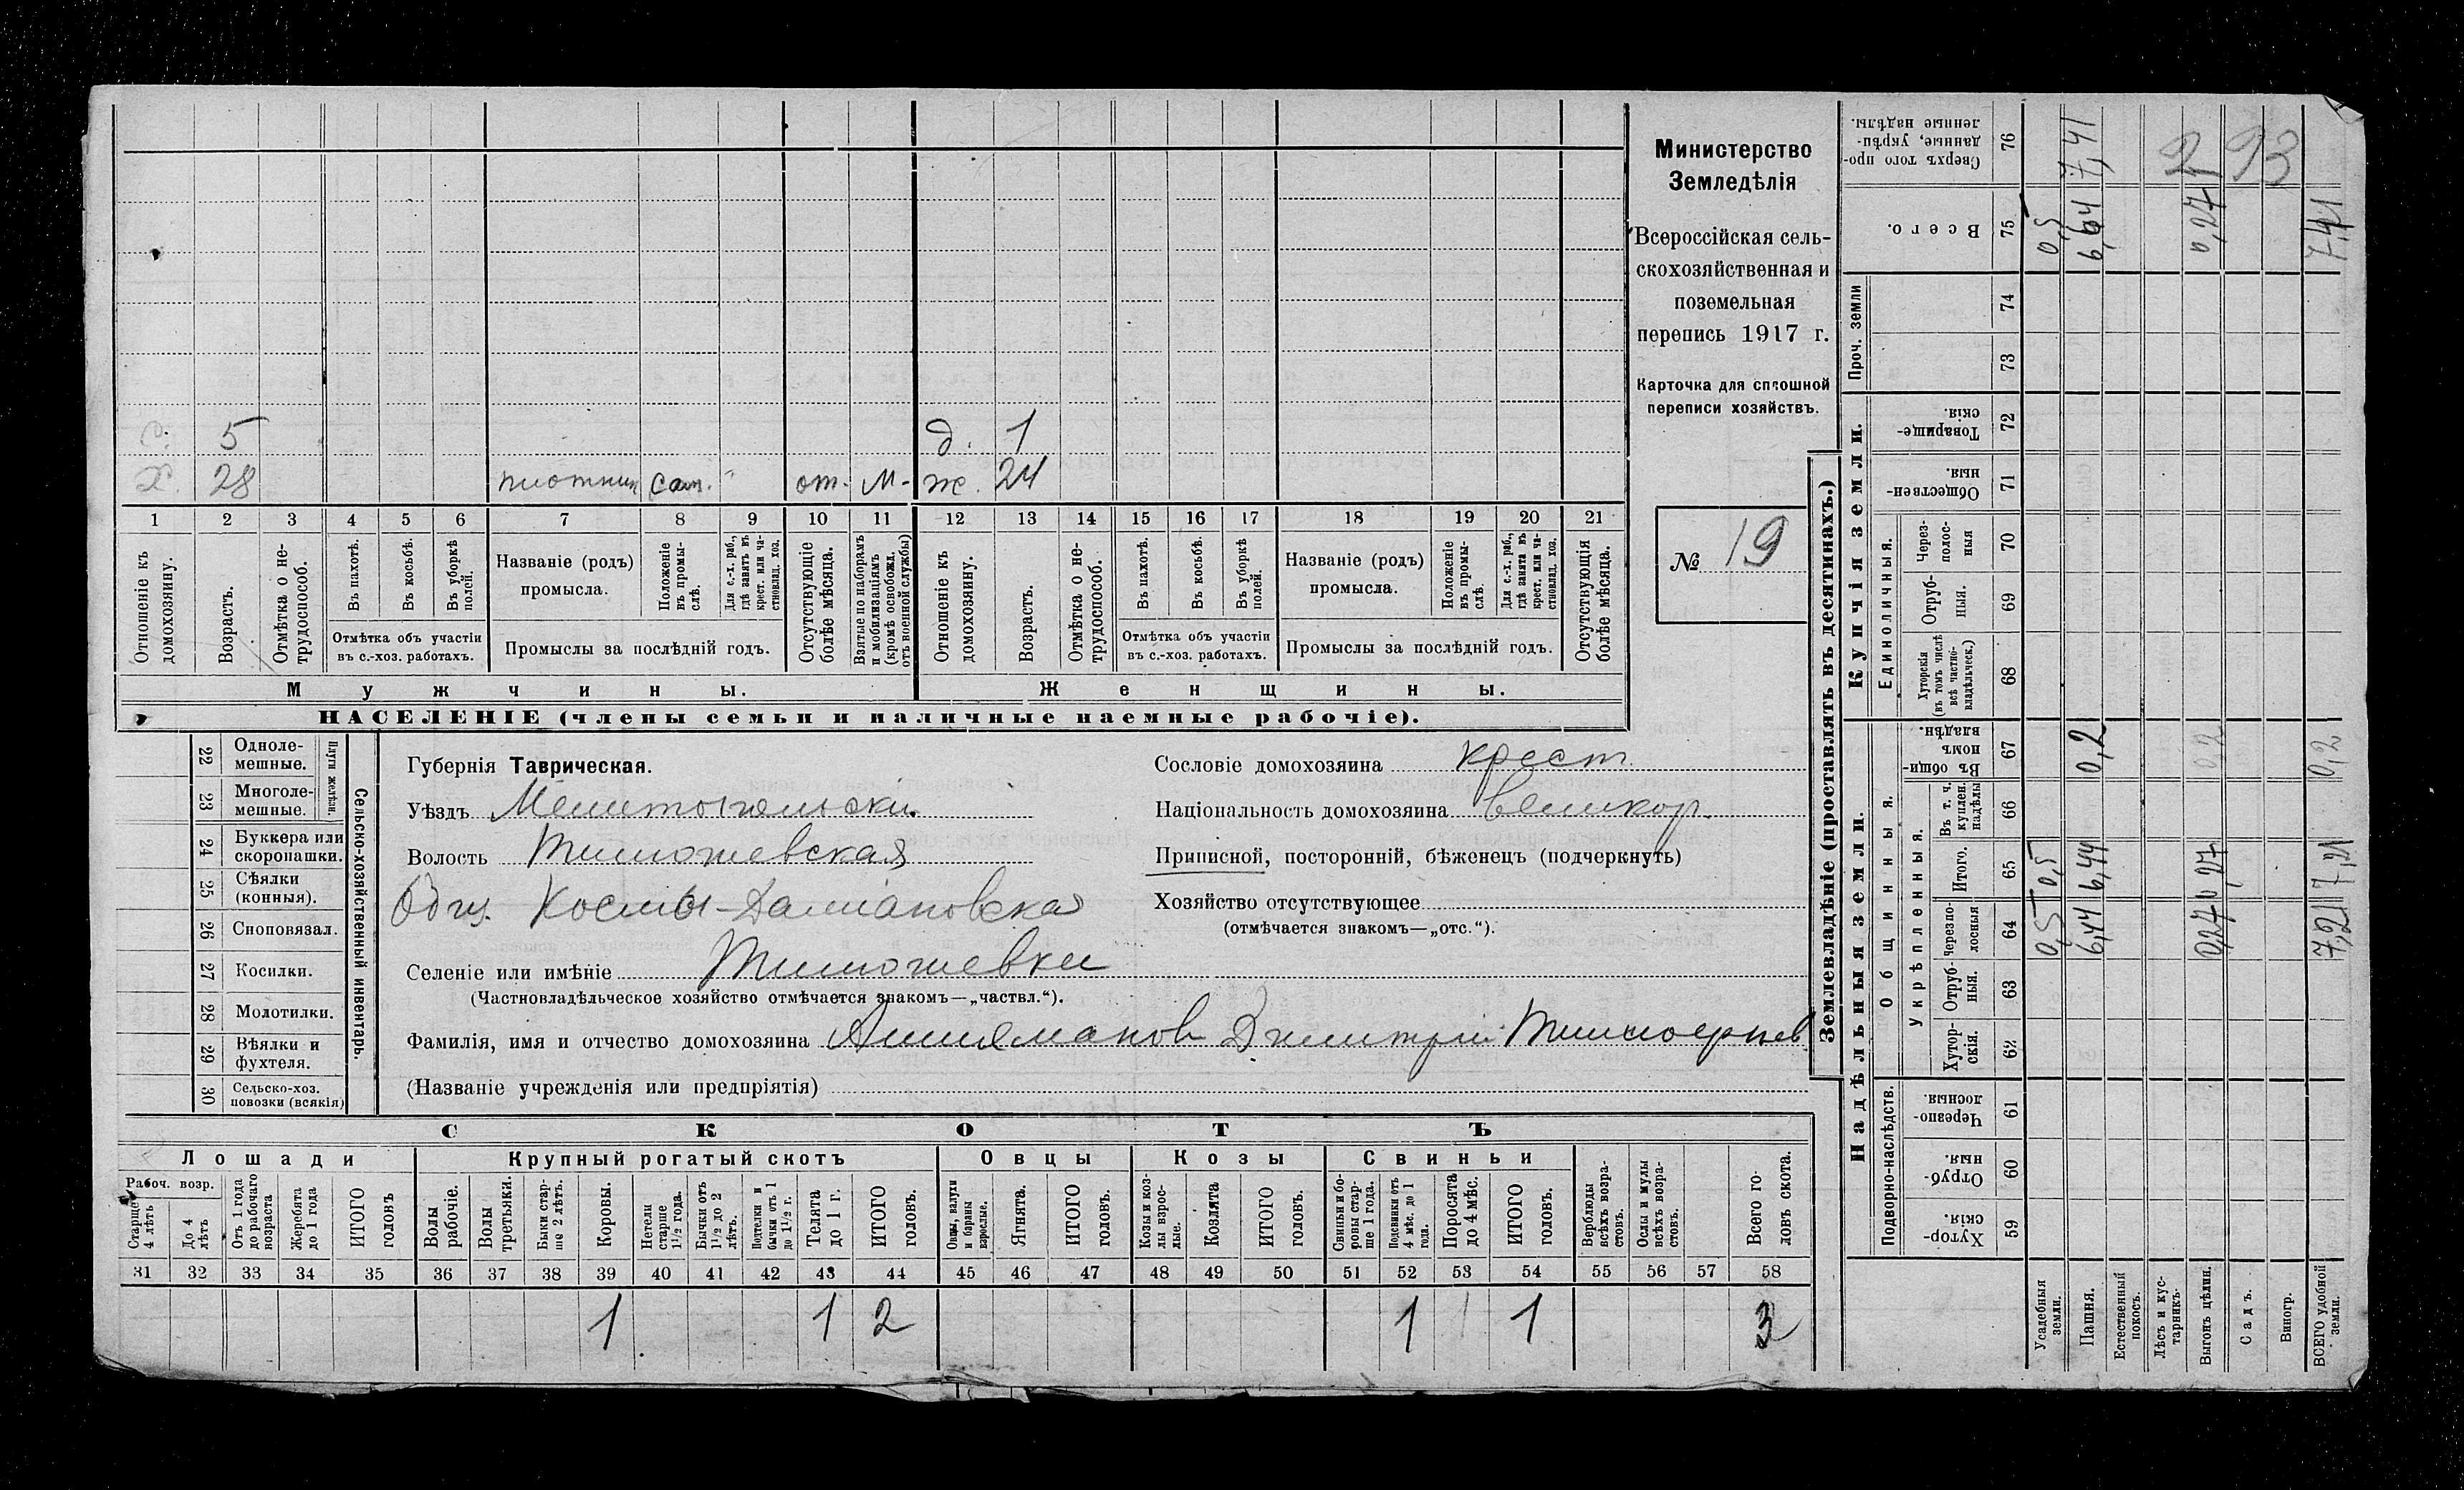 Министерство
Земледѣлія
Всероссійская сель-
скохозяйственная и
поземельная
перепись 1917 г.
Карточка для сплошной
переписи хозяйствъ.
№ 19
с. 5 д. 1
Х. 28 плотник сам. " от. м. ж. 24
1 2 3 4 5 6 7 8 9 10 11 12 13 14 15 16 17 18 19 20 21
Отношеніе къ домохозяину.
Возрастъ.
Отмѣтка о не-трудоспособ.
Въ пахотѣ.
Въ косьбѣ.
Въ уборкѣ полей.
Отмѣтка объ участіи въ с.-хоз. работахъ.
Названіе (родъ) промысла.
Положеніе въ промы-слѣ.
Для с.-х. раб., гдѣ занятъ въ крест. или ча-стновлад. хоз.
Промыслы за послѣдній годъ.
Отсутствующіе болѣе мѣсяца.
Взятые по наборамъ и мобилизаціямъ (кромѣ освобожд. отъ военной службы)
Отношеніе къ домохозяину.
Возрастъ.
Отмѣтка о не-трудоспособ.
Въ пахотѣ.
Въ косьбѣ.
Въ уборкѣ полей.
Отмѣтка объ участіи въ с.-хоз. работахъ.
Названіе (родъ) промысла.
Положеніе въ промы-слѣ.
Для с.-х. раб., гдѣ занята въ крест. или ча-стновлад. хоз.
Промыслы за послѣдній годъ.
Отсутствующія болѣе мѣсяца.
Мужчины. Женщины.
НАСЕЛЕНІЕ (члены семьи и наличные наемные рабочіе).
Сельско-хозяйственный инвентарь.
Плуги желѣзн.
22 Одноле-мешные.
23 Многоле-мешные.
24 Буккера или скоропашки.
25 Сѣялки (конныя).
26 Сноповязал.
27 Косилки.
28 Молотилки.
29 Вѣялки и фухтеля.
30 Сельско-хоз. повозки (всякія)
Губернія Таврическая.
Уѣздъ Мелитопольски.
Волость Тимошевская
Общ. Космы-Даміановская
Селеніе или имѣніе Тимошевки
(Частновладѣльческое хозяйство отмѣчается знакомъ—„частвл.“).
Фамилія, имя и отчество домохозяина Димитрій
(Названіе учрежденія или предпріятія)
Сословіе домохозяина крест.
Національность домохозяина великор.
Приписной, посторонній, бѣженецъ (подчеркнуть)
Хозяйство отсутствующее
(отмѣчается знакомъ—„отс.“).
СКОТЪ
Лошади Крупный рогатый скотъ Овцы Козы Свиньи
Рабоч. возр.
Старше 4 лѣтъ
До 4 лѣтъ
Отъ 1 года до рабочаго возраста
Жеребята до 1 года
ИТОГО головъ
Волы рабочіе.
Волы третьяки.
Быки стар-ше 2 лѣтъ.
Коровы.
Нетели старше 1½ года.
Бычки отъ 1½ до 2 лѣтъ.
Подтелки и бычки отъ 1 до 1½ г.
Телята до 1 г.
ИТОГО головъ.
Овцы, валухи и бараны взрослые.
Ягнята.
ИТОГО головъ.
Козы и коз-лы взрос-лые.
Козлята
ИТОГО головъ.
Свиньи и бо-ровы стар-ше 1 года.
Подсвинки отъ 4 мѣс. до 1 года.
Поросята до 4 мѣс.
ИТОГО головъ.
Верблюды всѣхъ возра-стовъ.
Ослы и мулы всѣхъ возра-стовъ.
Всего го-ловъ скота.
31 32 33 34 35 36 37 38 39 40 41 42 43 44 45 46 47 48 49 50 51 52 53 54 55 56 57 58
1 1 2 1 1 3
Землевладѣніе (проставлять въ десятинахъ.)
Надѣльныя земли. Купчія земли. Проч. земли
Подворно-наслѣдств. Общинныя. Укрѣпленныя. Единоличныя.
59 Хутор-скія.
60 Отруб-ныя.
61 Черезпо-лосныя
62 Хутор-скія.
63 Отруб-ныя.
64 Черезпо-лосныя
65 Итого.
66 Въ т. ч. куплен. надѣлы
67 Въ общи-номъ владѣн.
68 Хуторскія (въ томъ числѣ всѣ частно-владѣльческ.)
69 Отруб-ныя.
70 Через-полос-ныя
71 Обществен-ныя.
72 Товарище-скія.
73
74
75 Всего.
76 Сверхъ того про-данные, укрѣп-ленные надѣлы.
Усадебныя земли. 0,5 0,5 0,5
Пашня. 6,44 6,44 0,2 6,64 7,41
Естественный покосъ.
Лѣсъ и кус-тарникъ.
Выгонъ цѣлин. 0,27 0,27 0,2 0,27
Садъ.
Виногр.
ВСЕГО удобной земли. 7,21 7,21 0,2 7,41
293